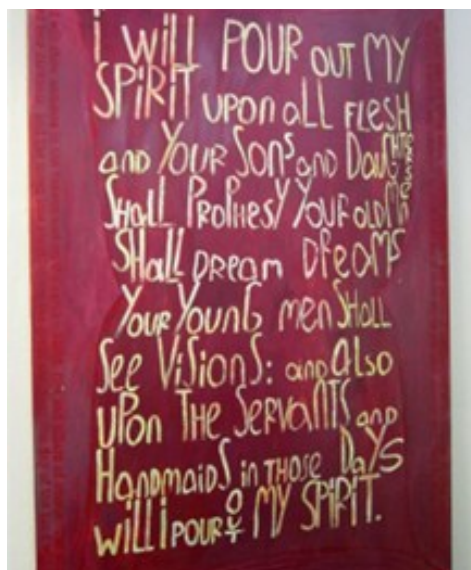 i will POUR OUT MY
SPiRiT UPON aLL FLESH
and YOUR SONS and DaUGHTERS
SHaLL PROPHESY YOUR OLD MEN
SHaLL DREaM DREaMS
YOUR YOUNG men SHaLL
See VISIONS: and aLso
UPON THE SERVaNTS and
HandmaidS in THOSE DaYS
WiLL i POUR OUT MY SPiRiT.